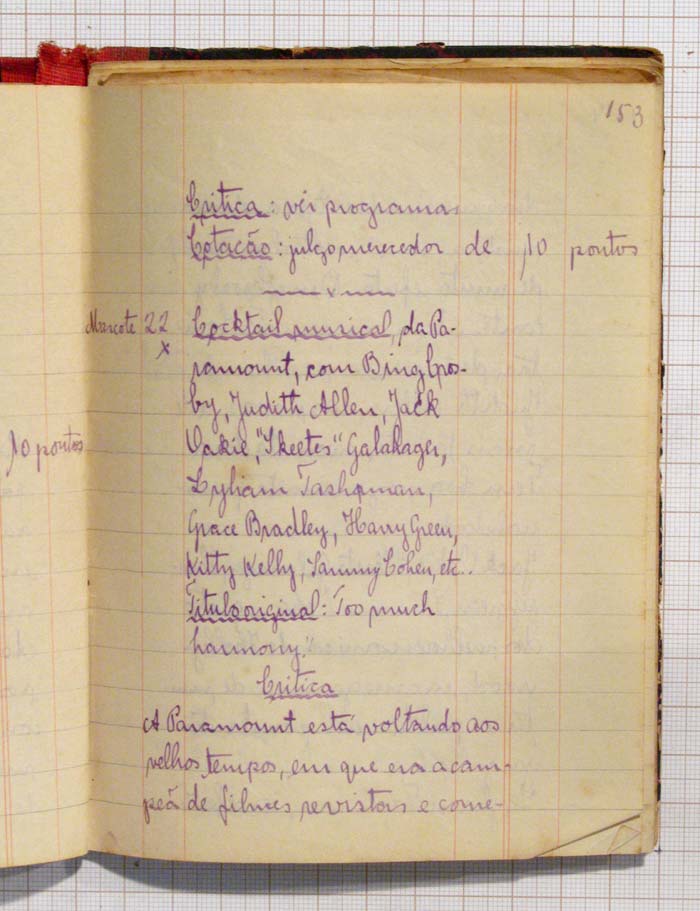 153
Critica: vêr programas
Cotação: julgo merecedor de 10 pontos
x
Mascote 22 Cocktail musical, da Pa-
x
ramount, com Bing Cros-
by, Judith Allen, Jack
Oakie, "Skeets" Galahager,
Lyliam Tashqman,
Grace Bradley, Harry Green,
10 pontos
Kitty Kelly, Sammy Cohen, etc..
Titulo original: Too much
harmony."
Critica
A Paramount está voltando aos
velhos tempos, em que era a cam-
peã de filmes revistas e come-